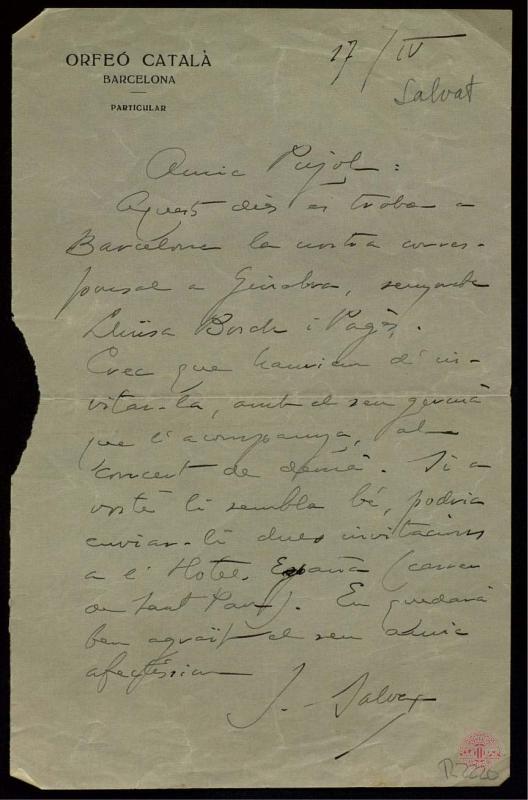 ORFEÓ CATALÀ
BARCELONA
PARTICULAR
17/IV
Salvat
Amic Pujol:
Aquest dies es troba a
Barcelona la nostra corres-
ponsal a Ginebra, senyoreta
Lluïsa Bosch i Pagès.
Crec que hauriem d'in-
vitar-la, amb el seu germà
que l'acompanya, al
concert de demà. Si a
vostè li sembla bé, podria
enviar-li dues invitacions
a l'Hotel España (carrer
de Sant Pau). En quedarà
ben agraït el seu amic
afectíssim
J. Salvat
R.2220